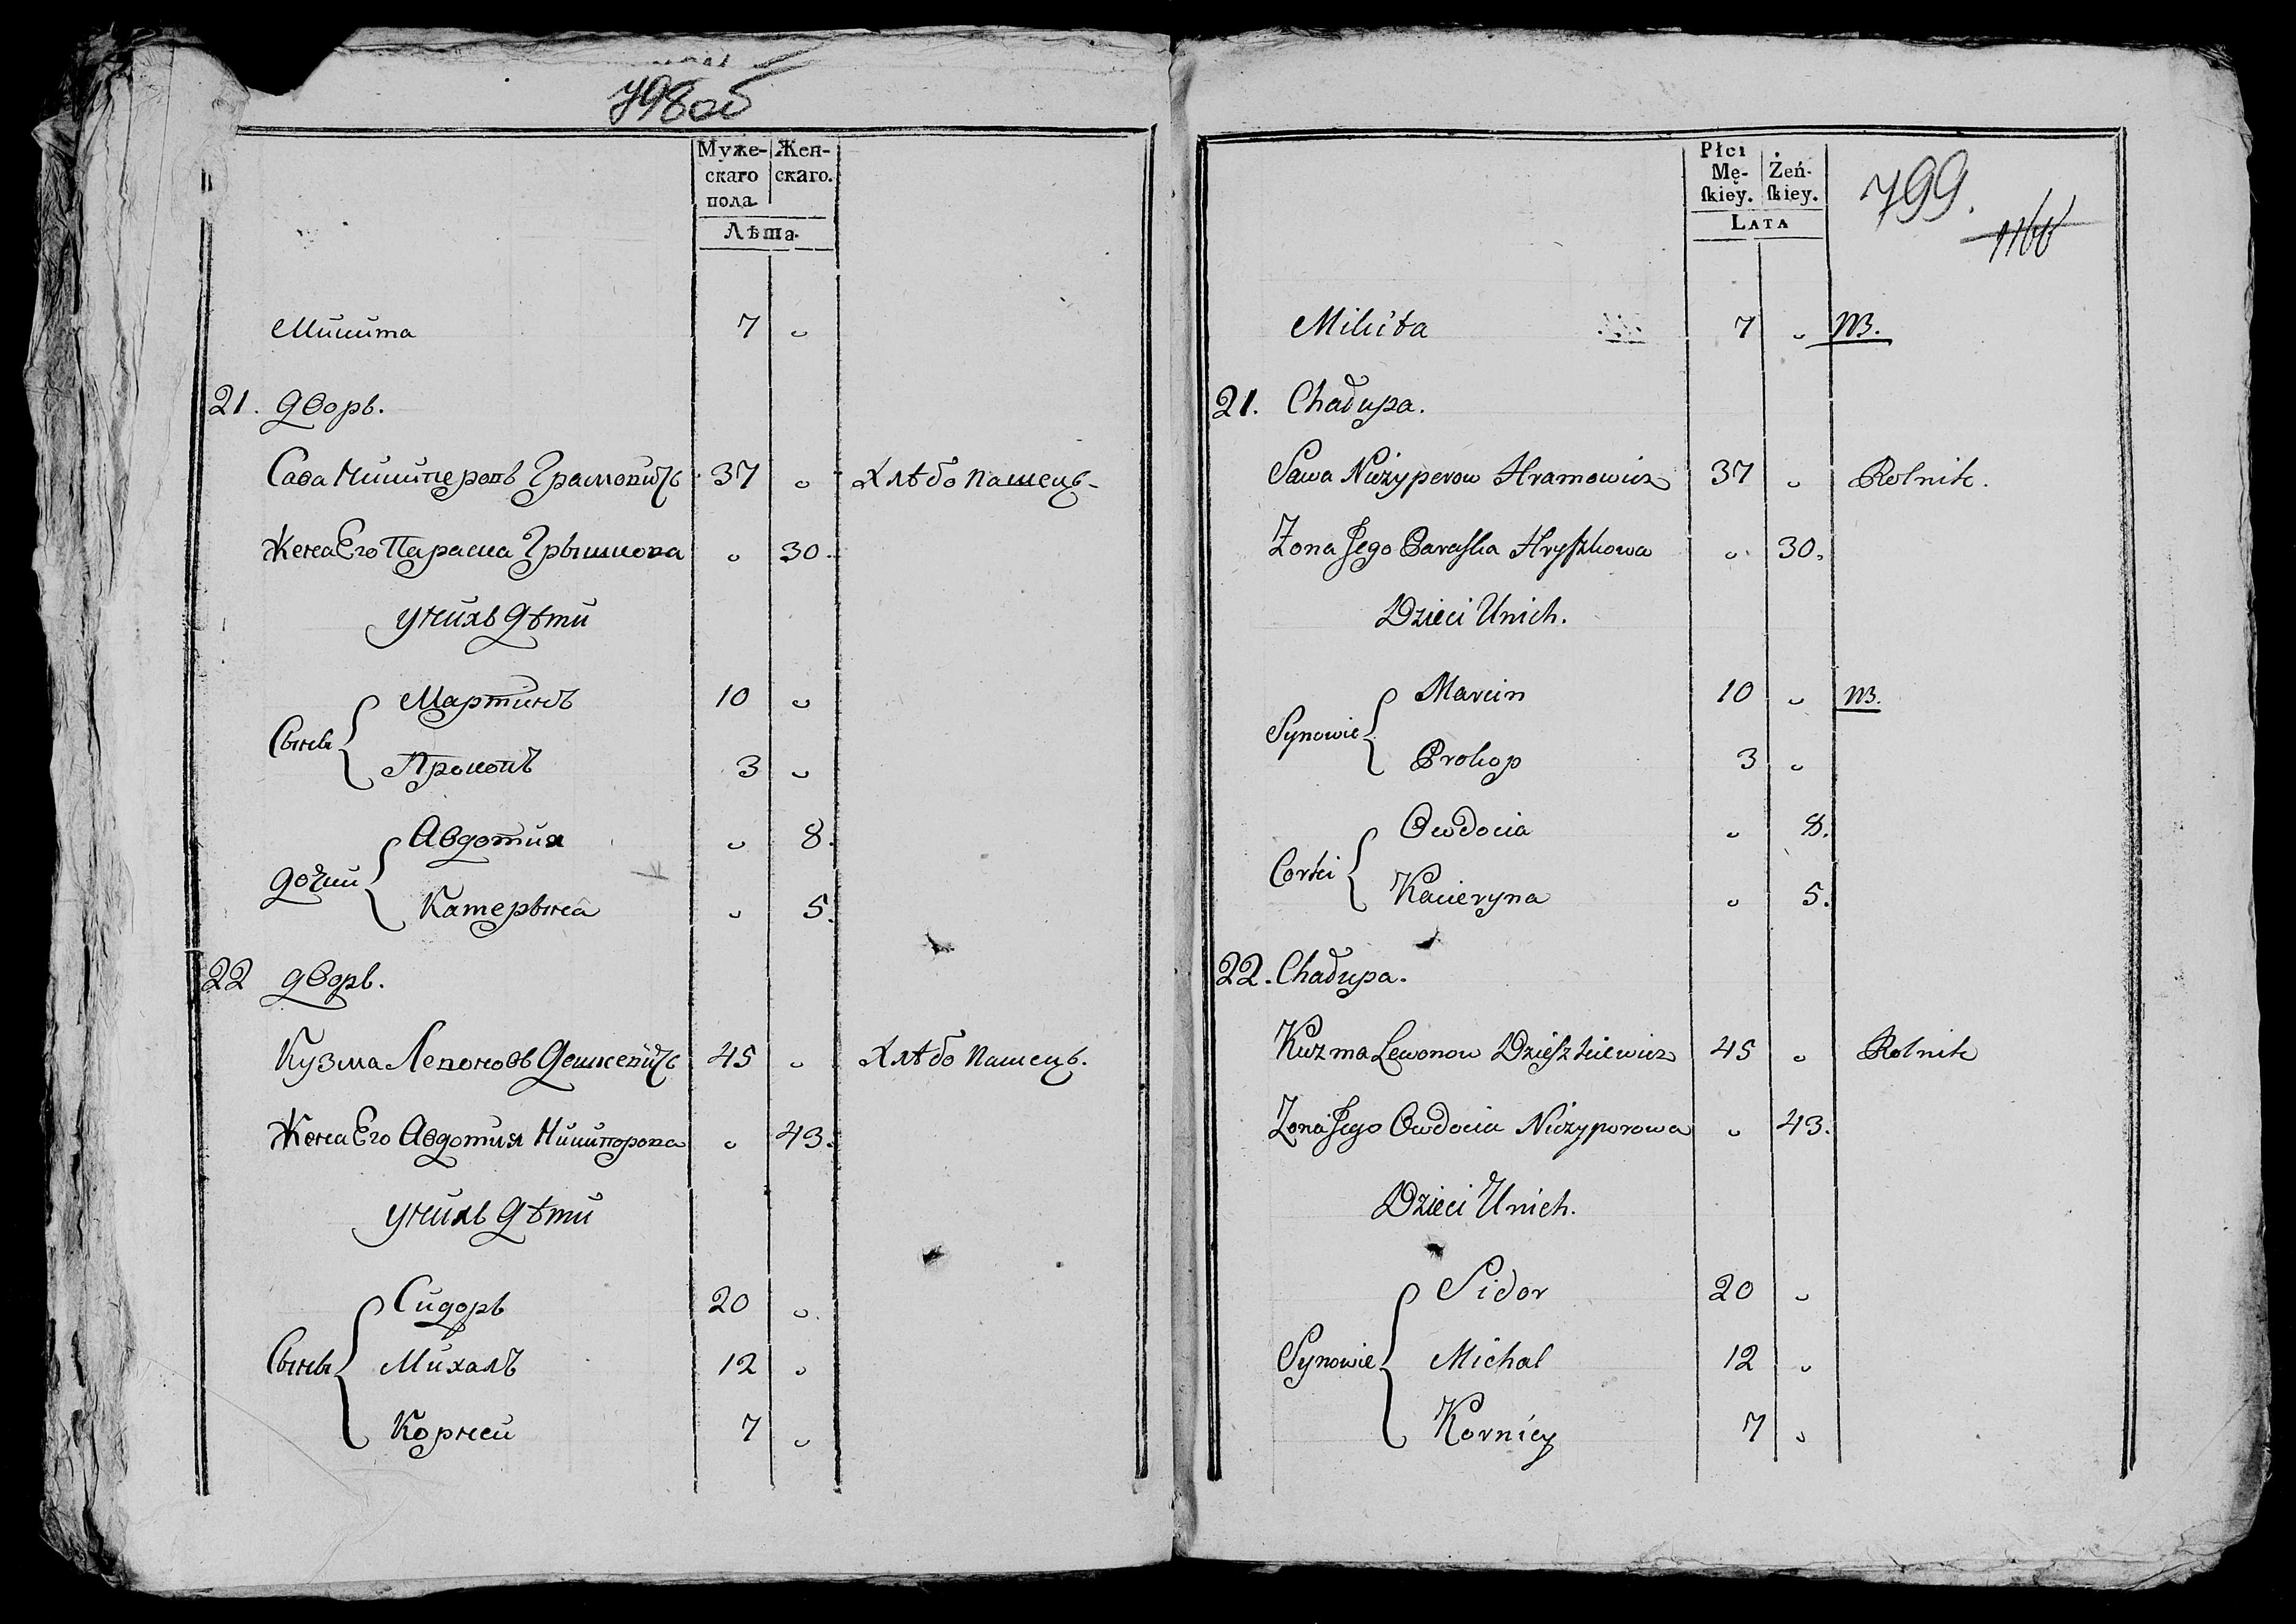 798об
Муже- Жен-
скаго скаго.
пола
Лѣта.
Микита 7 "
21. дворъ.
Сава Никиперовъ Грамовичъ 37 " Хлѣбо пашецъ
Жена Его Параска Грышкова " 30.
У нихъ дѣти
Сыны { Мартинъ 10 "
Прокопъ 3 "
Дочки { Авдотия " 8.
Катерына " 5.
22 дворъ.
Кузма Левоновъ Дешкевичъ 45 " Хлѣбо пашецъ.
Жена Его Авдотия Никипорова " 43.
У нихъ дѣти
Сыны { Сидоръ 20 "
Михалъ 12 "
Корней 7 "
799.
Płci
Mę- Żeń-
ſkiey. ſkiey.
LATA
Mikita 7 " NB.
21. Chadupa.
Sawa Niczyperow Hramowicz 37 " Rolnik.
Zona Jego Paraska Hryszkowa " 30.
Dzieci U nich.
Synowie { Marcin 10 " NB.
Prokop 3 "
Corki { Owdocia " 8.
Kacieryna " 5.
22. Chadupa.
Kuzma Lewonow Dzieszkiewicz 45 " Rolnik
Zona Jego Owdocia Niczyporowa " 43.
Dzieci U nich.
Synowie { Sidor 20 "
Michal 12 "
Korniey 7 "